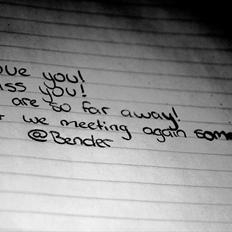 ove you!
iss you!
are so far away!
we meeting again some
@Bender